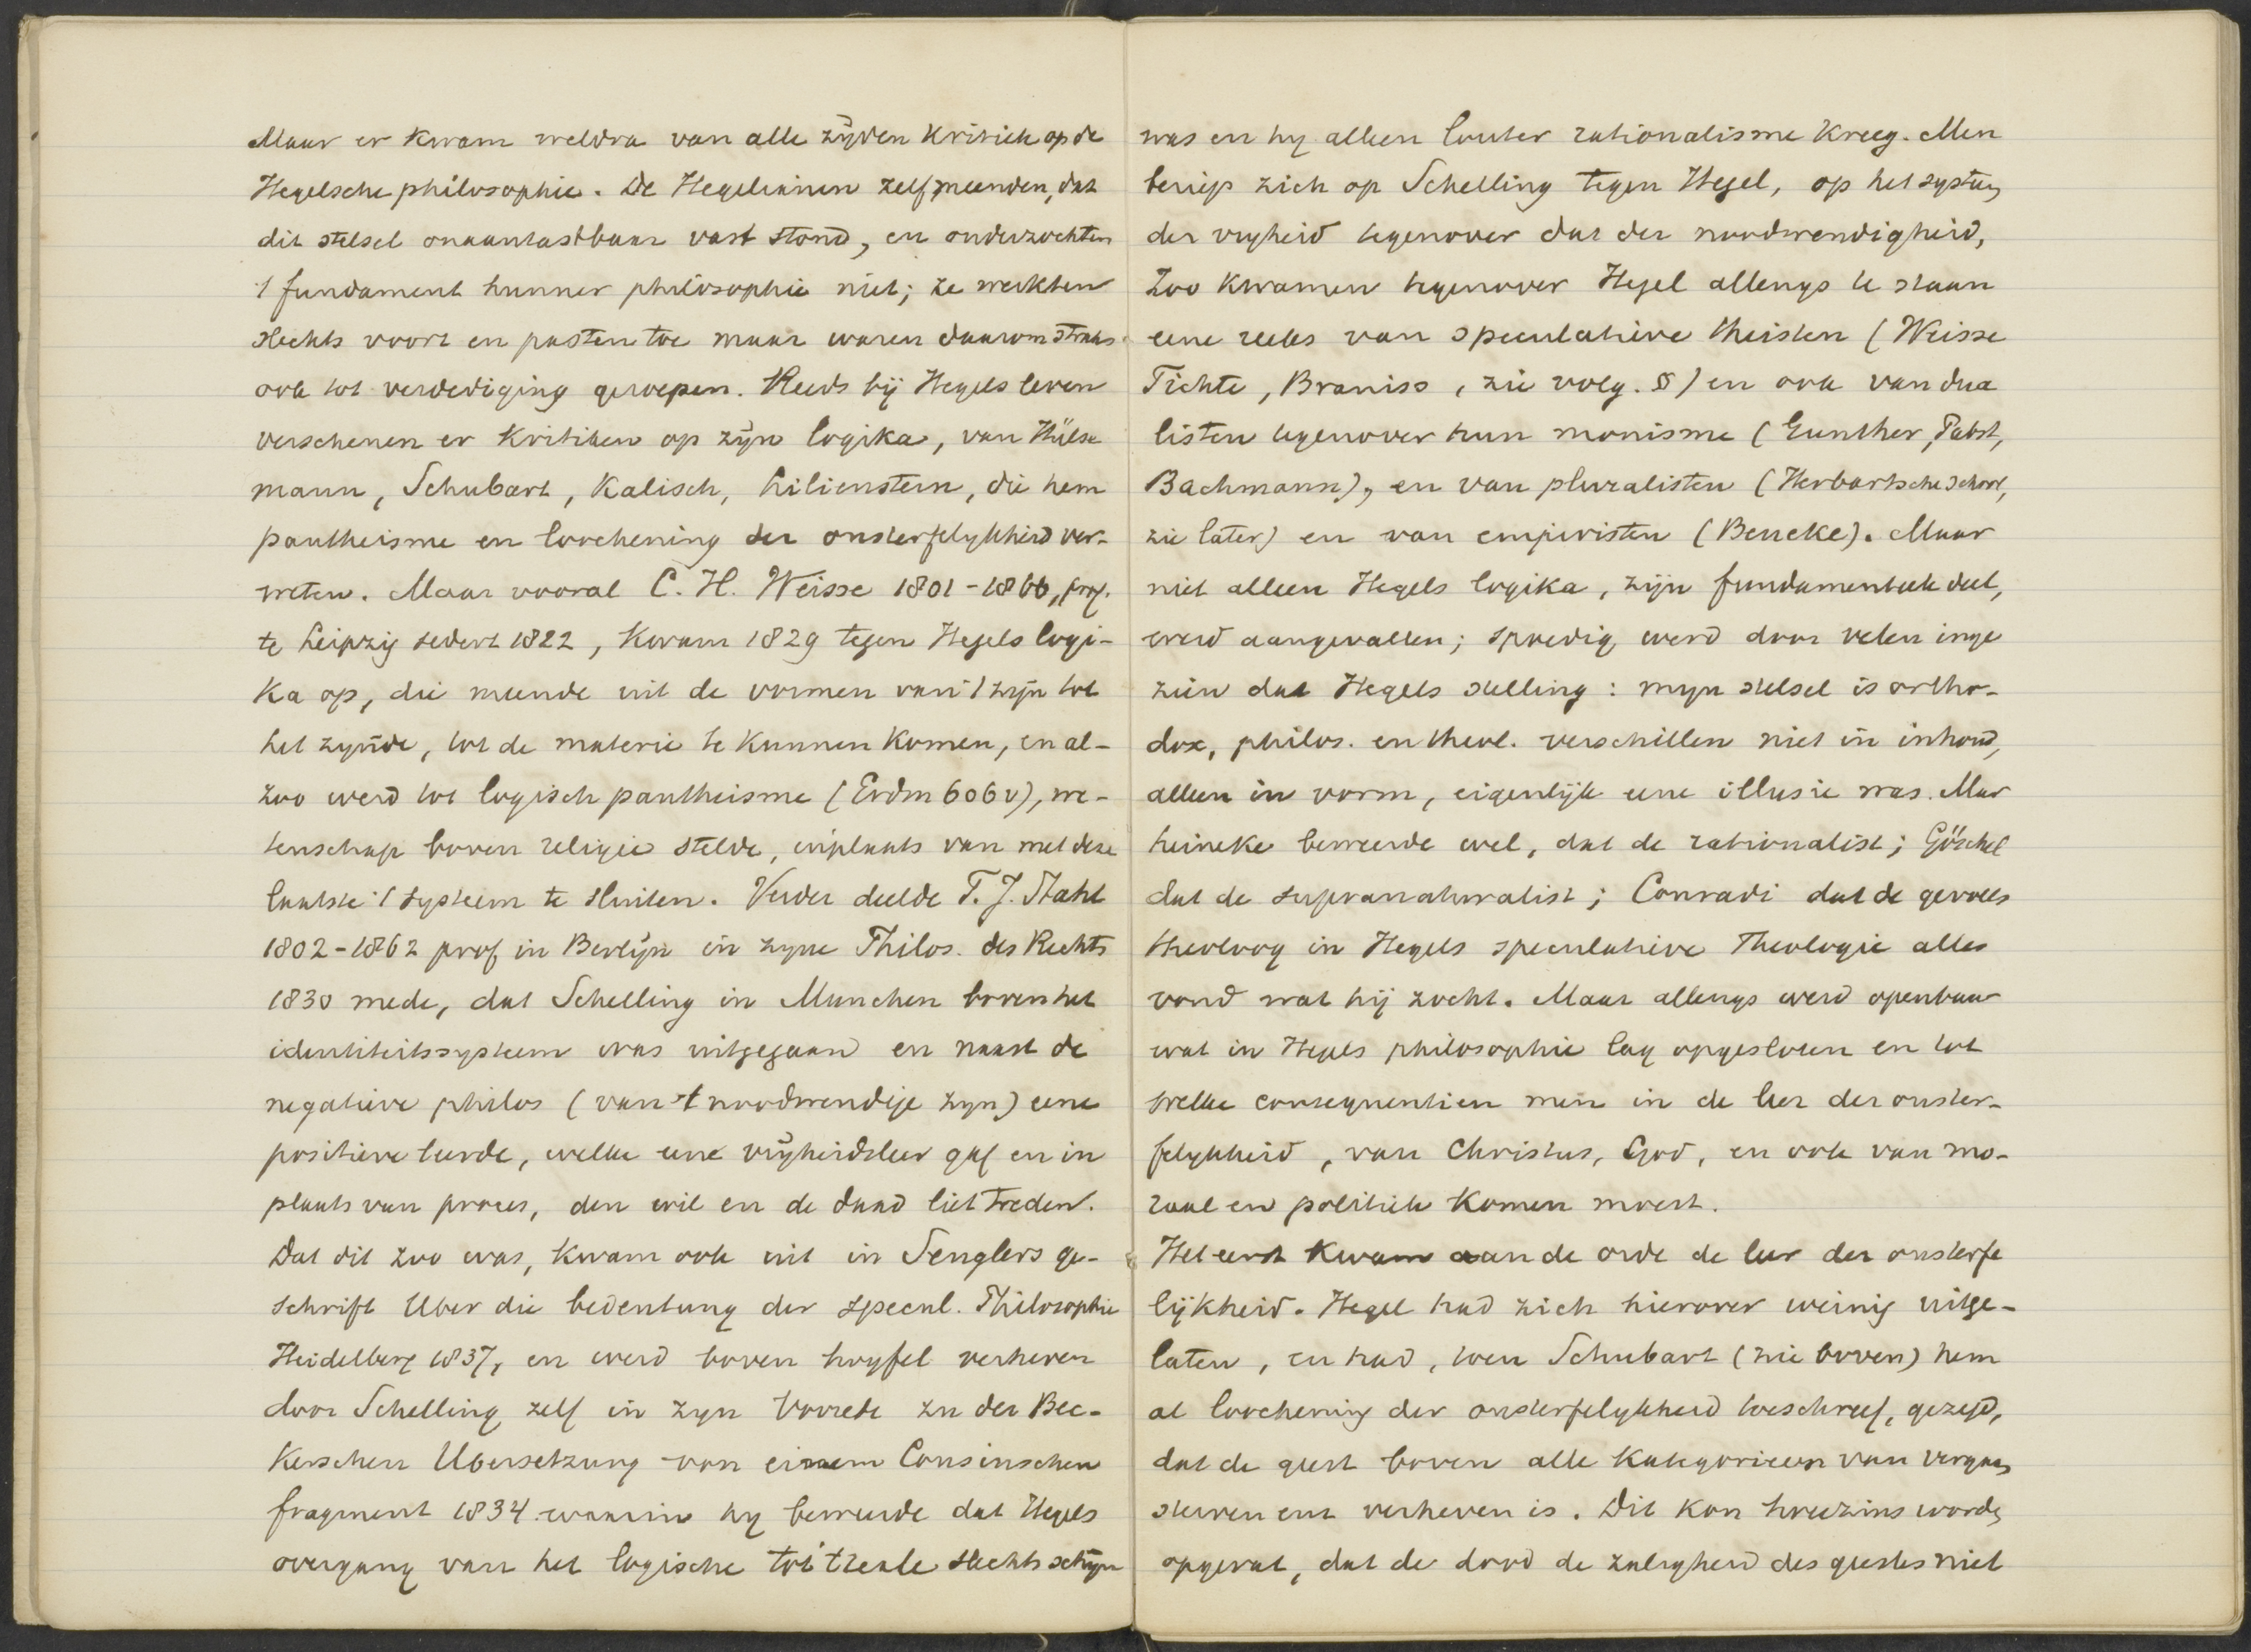 Maar er kwam weldra van alle zijden kritiek op de
Hegelsche philosophie. De Hegelianen zelf meenden, dat
dit stelsel onaantastbaar vast stond, en onderzochten
't fundament hunner philosophie niet; ze werkten
slechts voort en pasten toe maar waren daarom straks
ook tot verdediging geroepen. Reeds bij Hegels leven
verschenen er kritieken op zijn logika, van Hülse
mann, Schubart, Kalisch, Lilienstern, die hem
pantheisme en loochening der onsterfelykheid ver-
weten. Maar vooral C. H. Weisse 1801-1866, prof.
te Leipzig sedert 1822, kwam 1829 tegen Hegels logi-
ka op, die meende uit de vormen van 't zijn tot
het zynde, tot de materie te kunnen komen, en al-
zoo werd tot logisch pantheisme (Erdm 606 v), we-
tenschap boven religie stelde, inplaats van met deze
laatste 't systeem te sluiten. Verder deelde F. J. Stahl
1802-1862 prof in Berlijn in zyne Philos. des Rechts
1830 mede, dat Schelling in Munchen boven het
identiteitssysteem was uitgegaan en naast de
negatieve philos (van 't noodwendige zyn) eene
positieve leerde, welke eene vrijheidsleer gaf en in
plaats van proces, den wil en de daad liet treden.
Dat dit zoo was, kwam ook uit in Senglers ge-
schrift Uber die bedeutung der specul. Philosophie
Heidelberg 1837, en werd boven twyfel verheven
door Schelling zelf in zyn Vorrede zu der Bec-
kerschen Ubersetzung von einem Cousinschen
fragment 1834 waarin hy beweerde dat Hegels
overgang van het logische tot 't reale slechts schijn
was en hy alleen louter rationalisme kreeg. Men
beriep zich op Schelling tegen Hegel, op het systeem
der vryheid tegenover dat der noodwendigheid,
Zoo kwamen tegenover Hegel allengs te staan
eene reeks van speculatieve theisten (Weisse
Fichte, Braniss, zie volg. §) en ook van dua
listen tegenover hun monisme (Gunther, Pabst,
Bachmann), en van pluralisten (Herbartsche school,
zie later) en van empiristen (Beneke). Maar
niet alleen Hegels logika, zijn fundamenteele deel,
werd aangevallen; spoedig werd door velen inge
zien dat Hegels stelling: myn stelsel is ortho-
dox, philos. en theol. verschillen niet in inhoud,
alleen in vorm, eigenlijk eene illusie was. Mar
heineke beweerde wel, dat de rationalist; Göschel
dat de supranaturalist; Conradi dat de gevoels
theoloog in Hegels speculatieve Theologie alles
vond wat hij zocht. Maar allengs werd openbaar
wat in Hegels philosophie lag opgesloten en tot
welke consequentien men in de leer der onster-
felykheid, van Christus, God, en ook van mo-
raal en politiek komen moest.
Het eerst kwam aan de orde de leer der onsterfe
lijkheid. Hegel had zich hierover weinig uitge-
laten, en had, toen Schubart (zie boven) hem
al loochening der onsterfelykheid toeschreef, gezegd,
dat de geest boven alle kategorieen van vergaan
sterven enz verheven is. Dit kon tweezins worden
opgevat, dat de dood de zaligheid des geestes niet